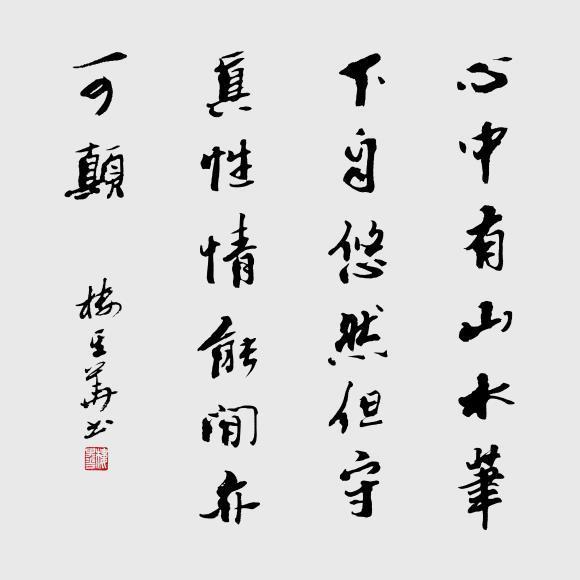 心中有山水筆
下自悠然但守
真性情能閒亦
可顛
樓正華書